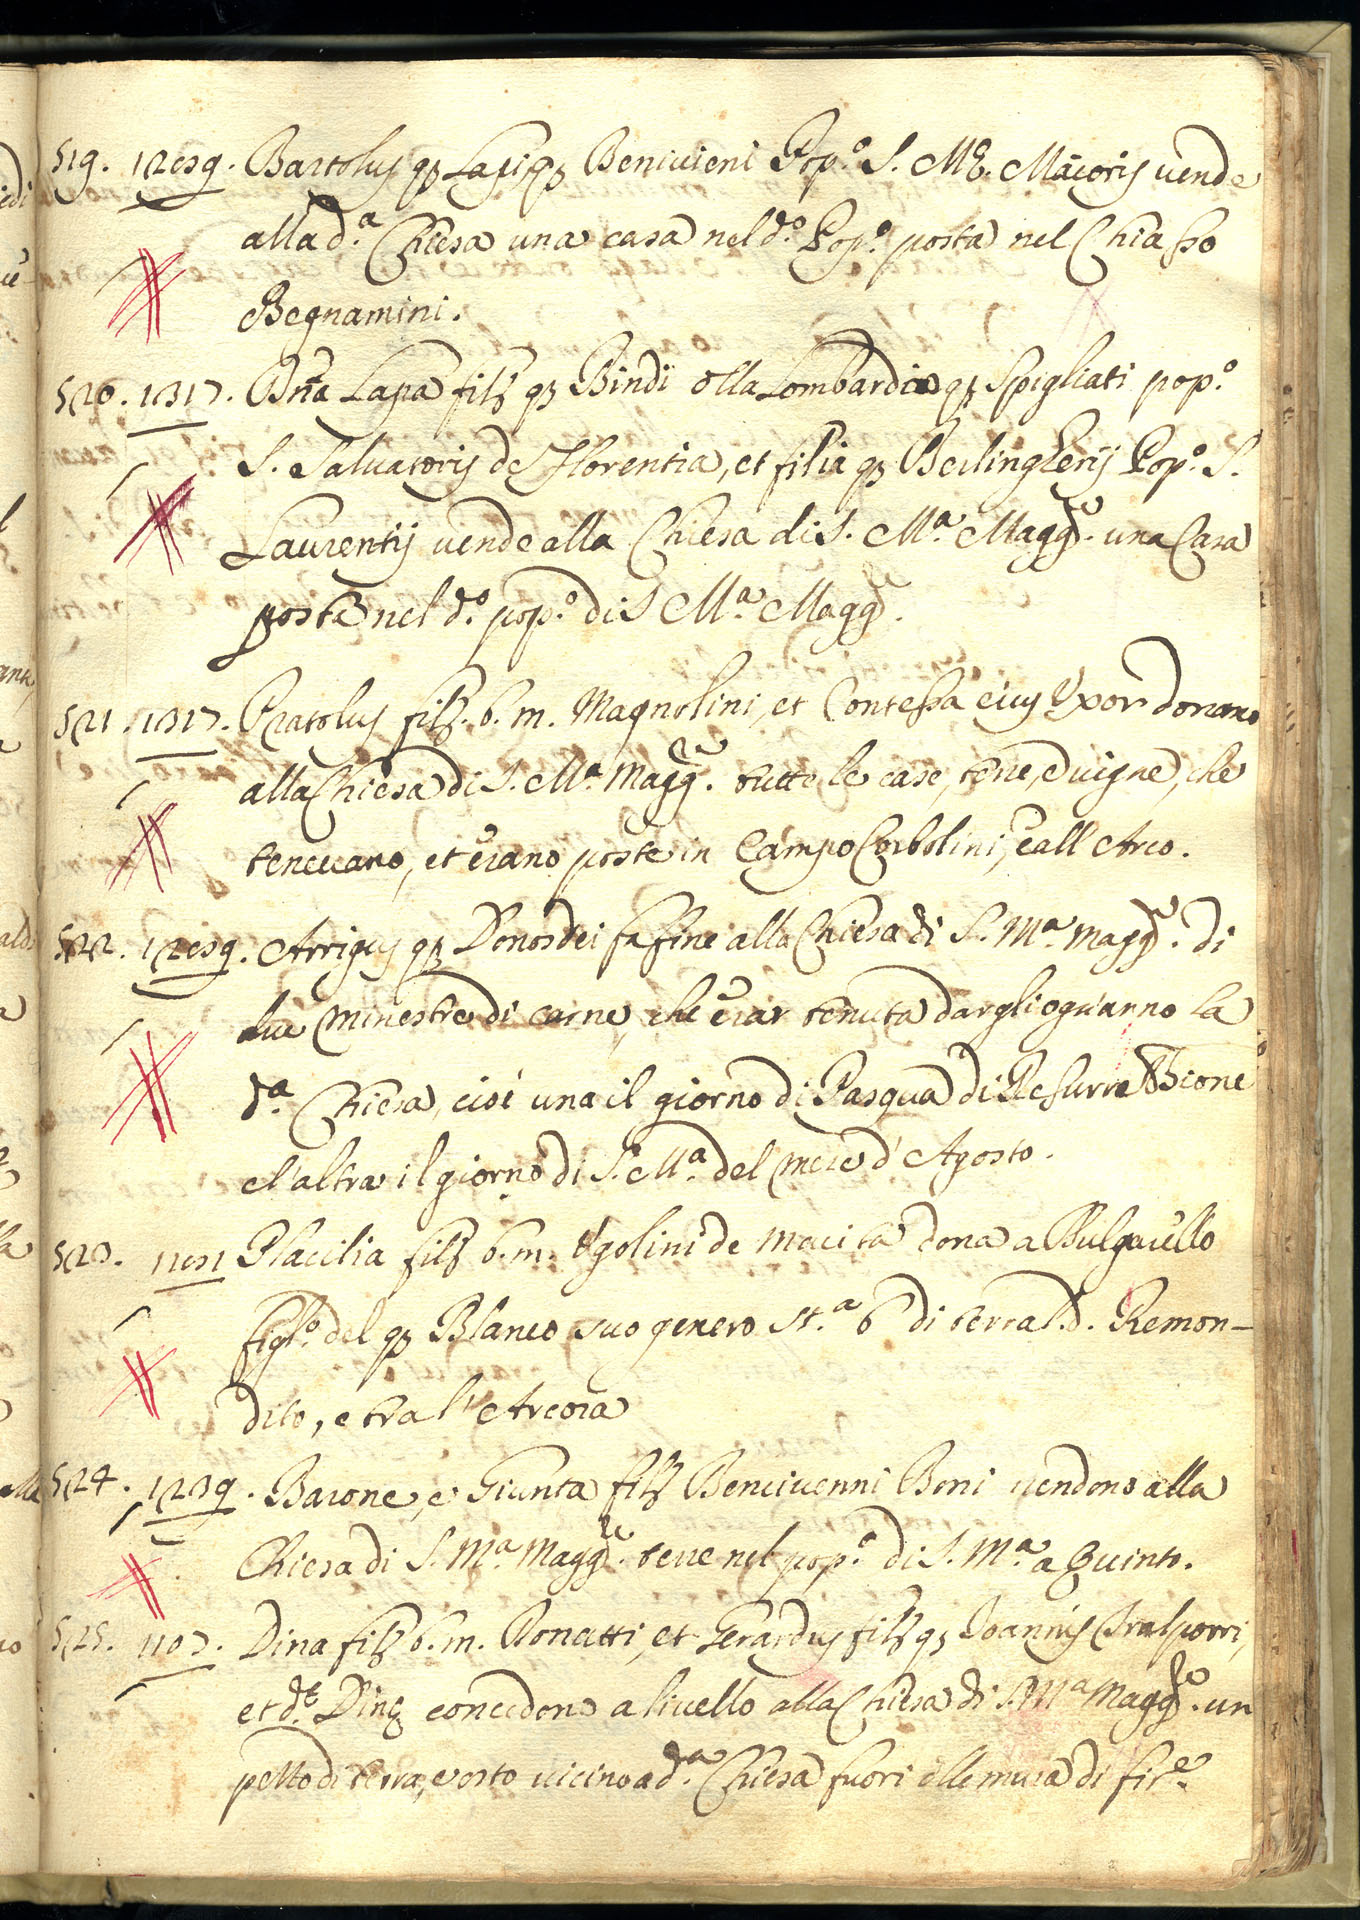 519. 1259. Bartolus qz Lapi qz Beniuieni Pop.º S. Mę. Maioris uende
alla d.ª Chiesa una casa nel d.º Pop.º posta nel Chiasso
Begnamini.
520. 1317. Dna Lapa filz qz Bindi della Lombarda qz Spigliati pop.º
S. Saluatoris de Florentia, et filia qz Berlingherij Pop.º S.
Laurentij uende alla Chiesa di S. M.ª Magg.e una Casa
posta nel d.º pop.º di S M.ª Magg.e
521. 1317. Pratolus filz. b. m. Magnolini, et Contessa eius Vxor donano
alla Chiesa di S. M.ª Magg.e tutte le case, terre, e uigne, che
teneuano, et erano poste in Campo Corbolini, e all'Arco.
522. 1259. Arrigus qz Donosdei fa fine alla Chiesa di S. M.ª Magg.e di
due minestre di carne, che era tenuta dargli ogn'anno la
d.ª Chiesa, cioè una il giorno di Pasqua di Resurrettione
e l'altra il giorno di S. M.ª del mese d'Agosto.
523. Placilia filz b. m. Vgolini de dona a Bulgarello
figl.º del qz Blanco suo genero st.ª 6 di terra l.d. Remon-
dito, e tra l'Arcora
524. 1239. Barone, e Giunta filz Benciuenni Boni uendono alla
Chiesa di S. M.ª Magg.e terre nel pop.º di S. M.ª a Quinto.
525. 1107. Dina filz b. m. Donatti, et Gerardus filz qz Ioannis
et d.e Dinę concedono a liuello alla Chiesa di S. M.ª Magg.e un
pezzo di terra, e orto uicino a d.ª Chiesa fuori delle mura di fir.e